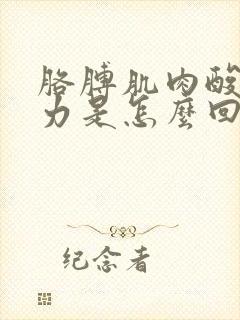 胳膊肌肉酸
力是怎麼回
纪念者